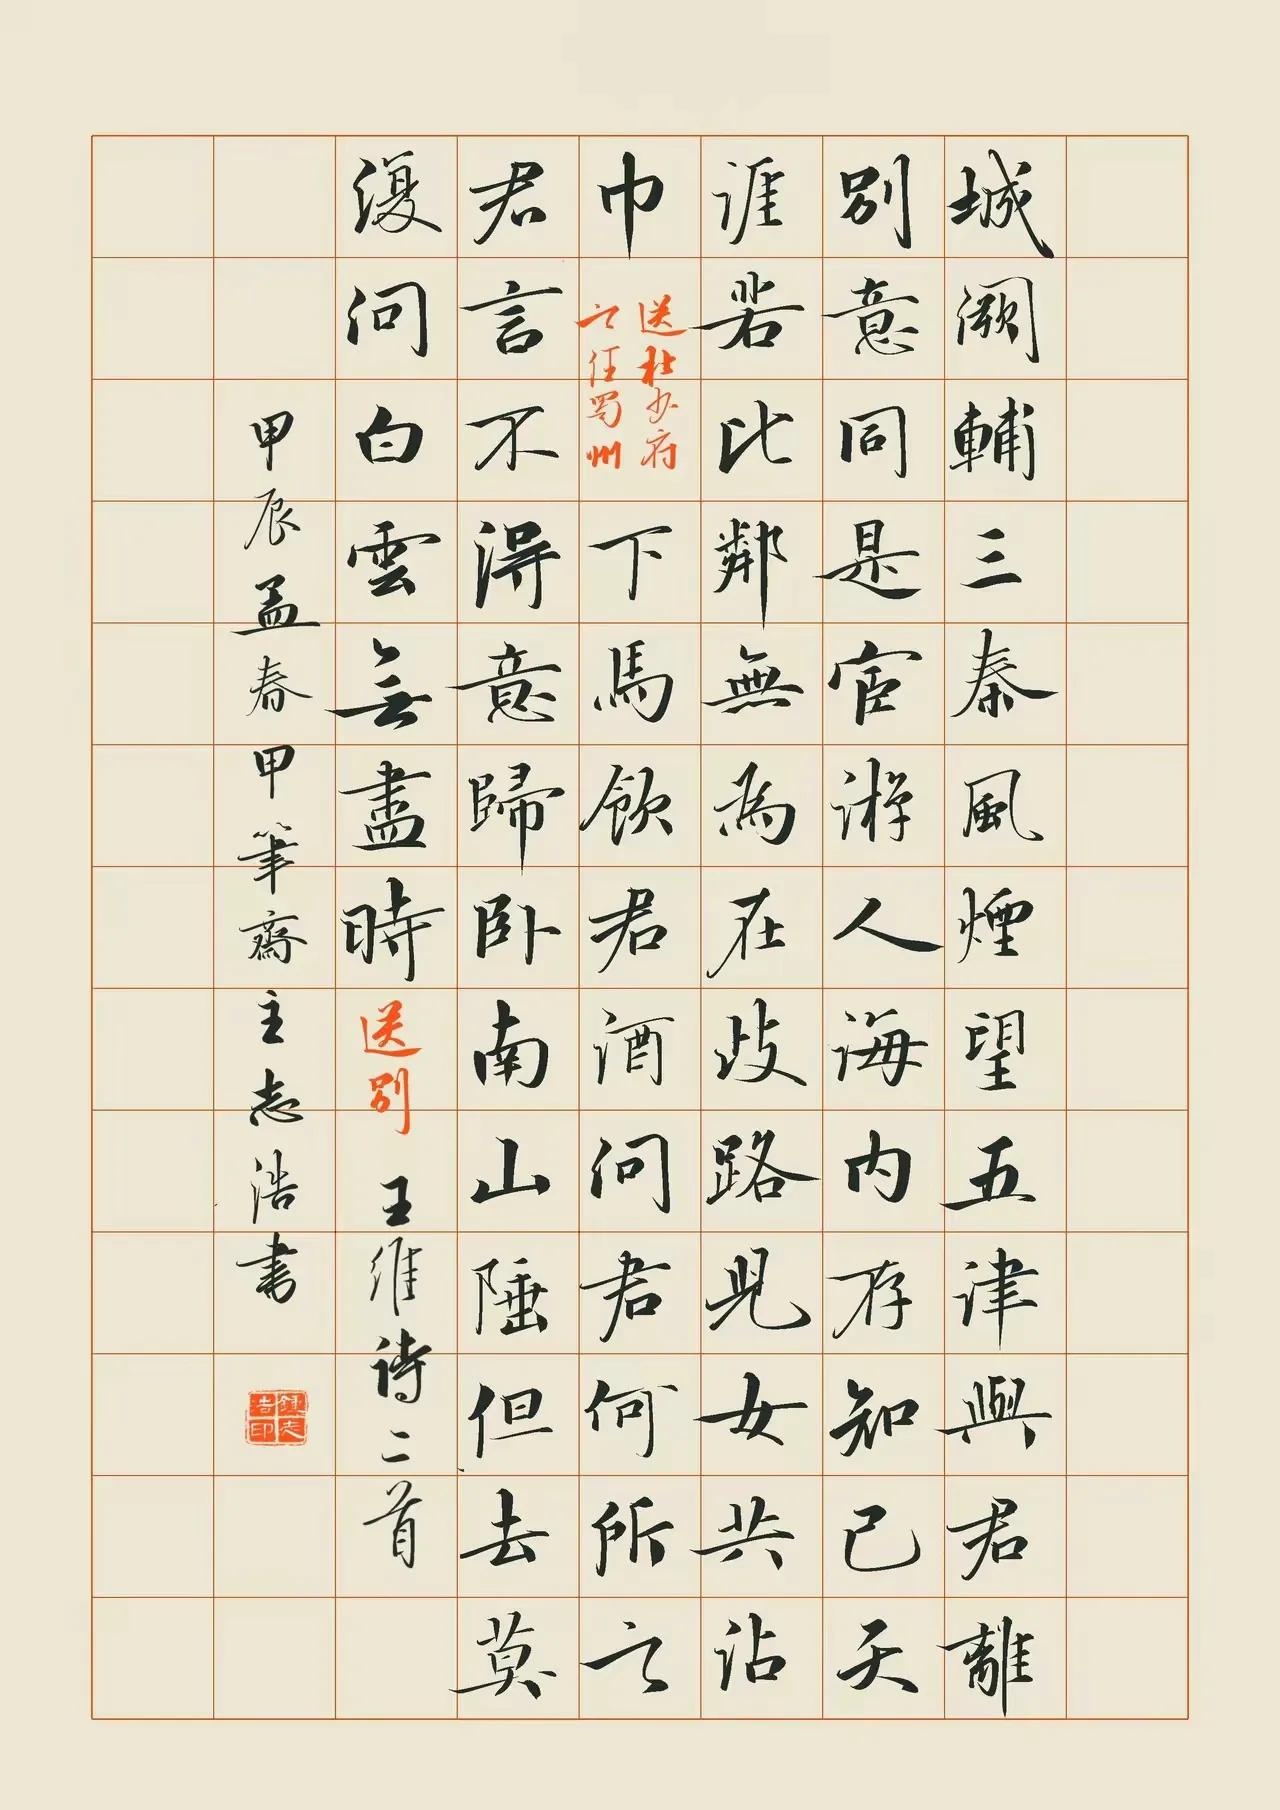 城阙輔三秦風煙望五津與君離
别意同是宦游人海内存知己天
涯若比鄰無為在歧路兒女共沾
巾
送杜少府
之任蜀州
下馬飲君酒问君何所之
君言不得意歸卧南山陲但去莫
復问白雲無盡時 送别 王维诗二首
甲辰孟春甲筆齋主志浩書
鍾志浩印